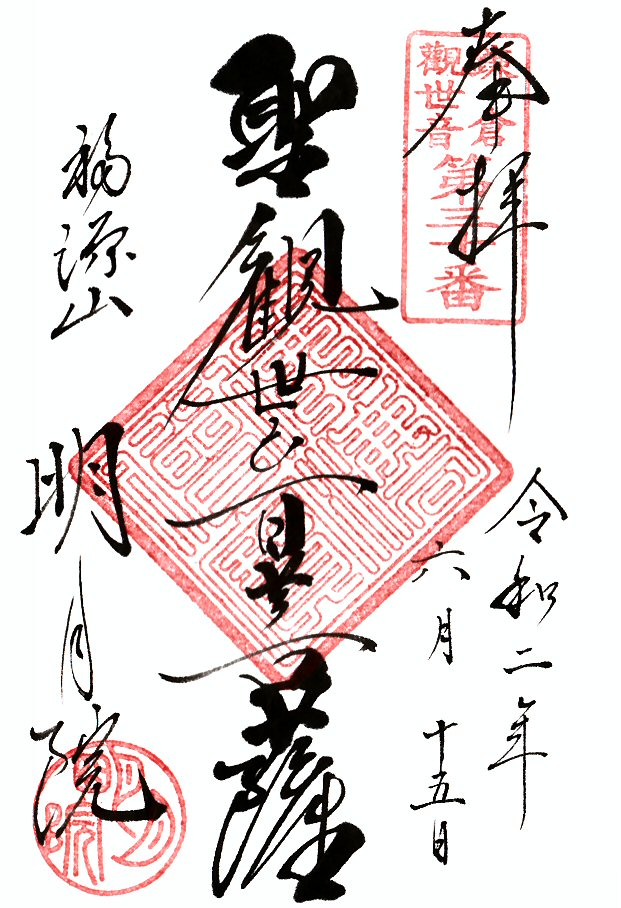 奉拝
鎌倉
觀世音
第三十番
令和二年
六月十五日
聖観世音菩薩
福源山
明月院
明月院